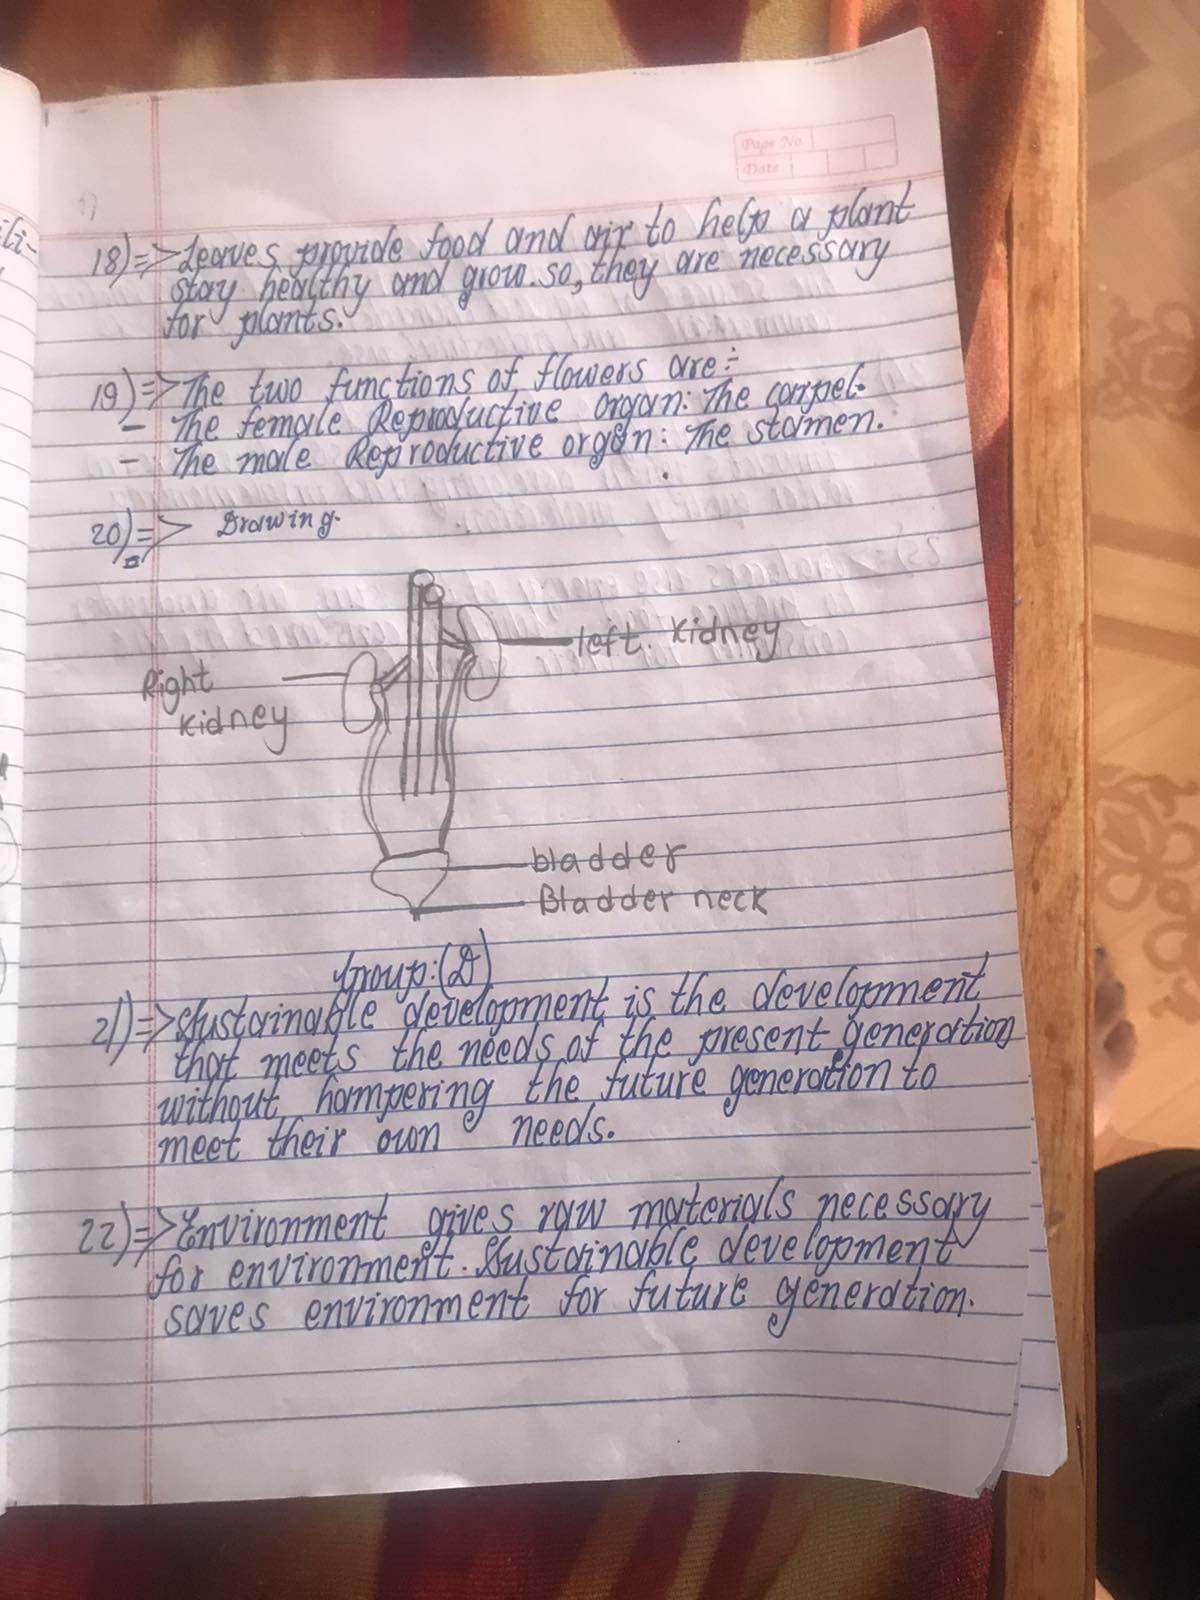 Page No.
Date
18)=> Leaves provide food and air to help a plant
stay healthy and grow. so, they are necessary
for plants.
19)=> The two functions of flowers are:-
- The female Reproductive organ: The carpel.
- The male Reproductive organ: The stamen.
20)=> Drawing.
left. Kidney
Right
Kidney
bladder
Bladder neck
Group:(D)
21)=> Sustainable development is the development
that meets the needs of the present generation
without hampering the future generation to
meet their own needs.
22)=> Environment gives raw materials necessary
for environment. Sustainable development
saves environment for future generation.